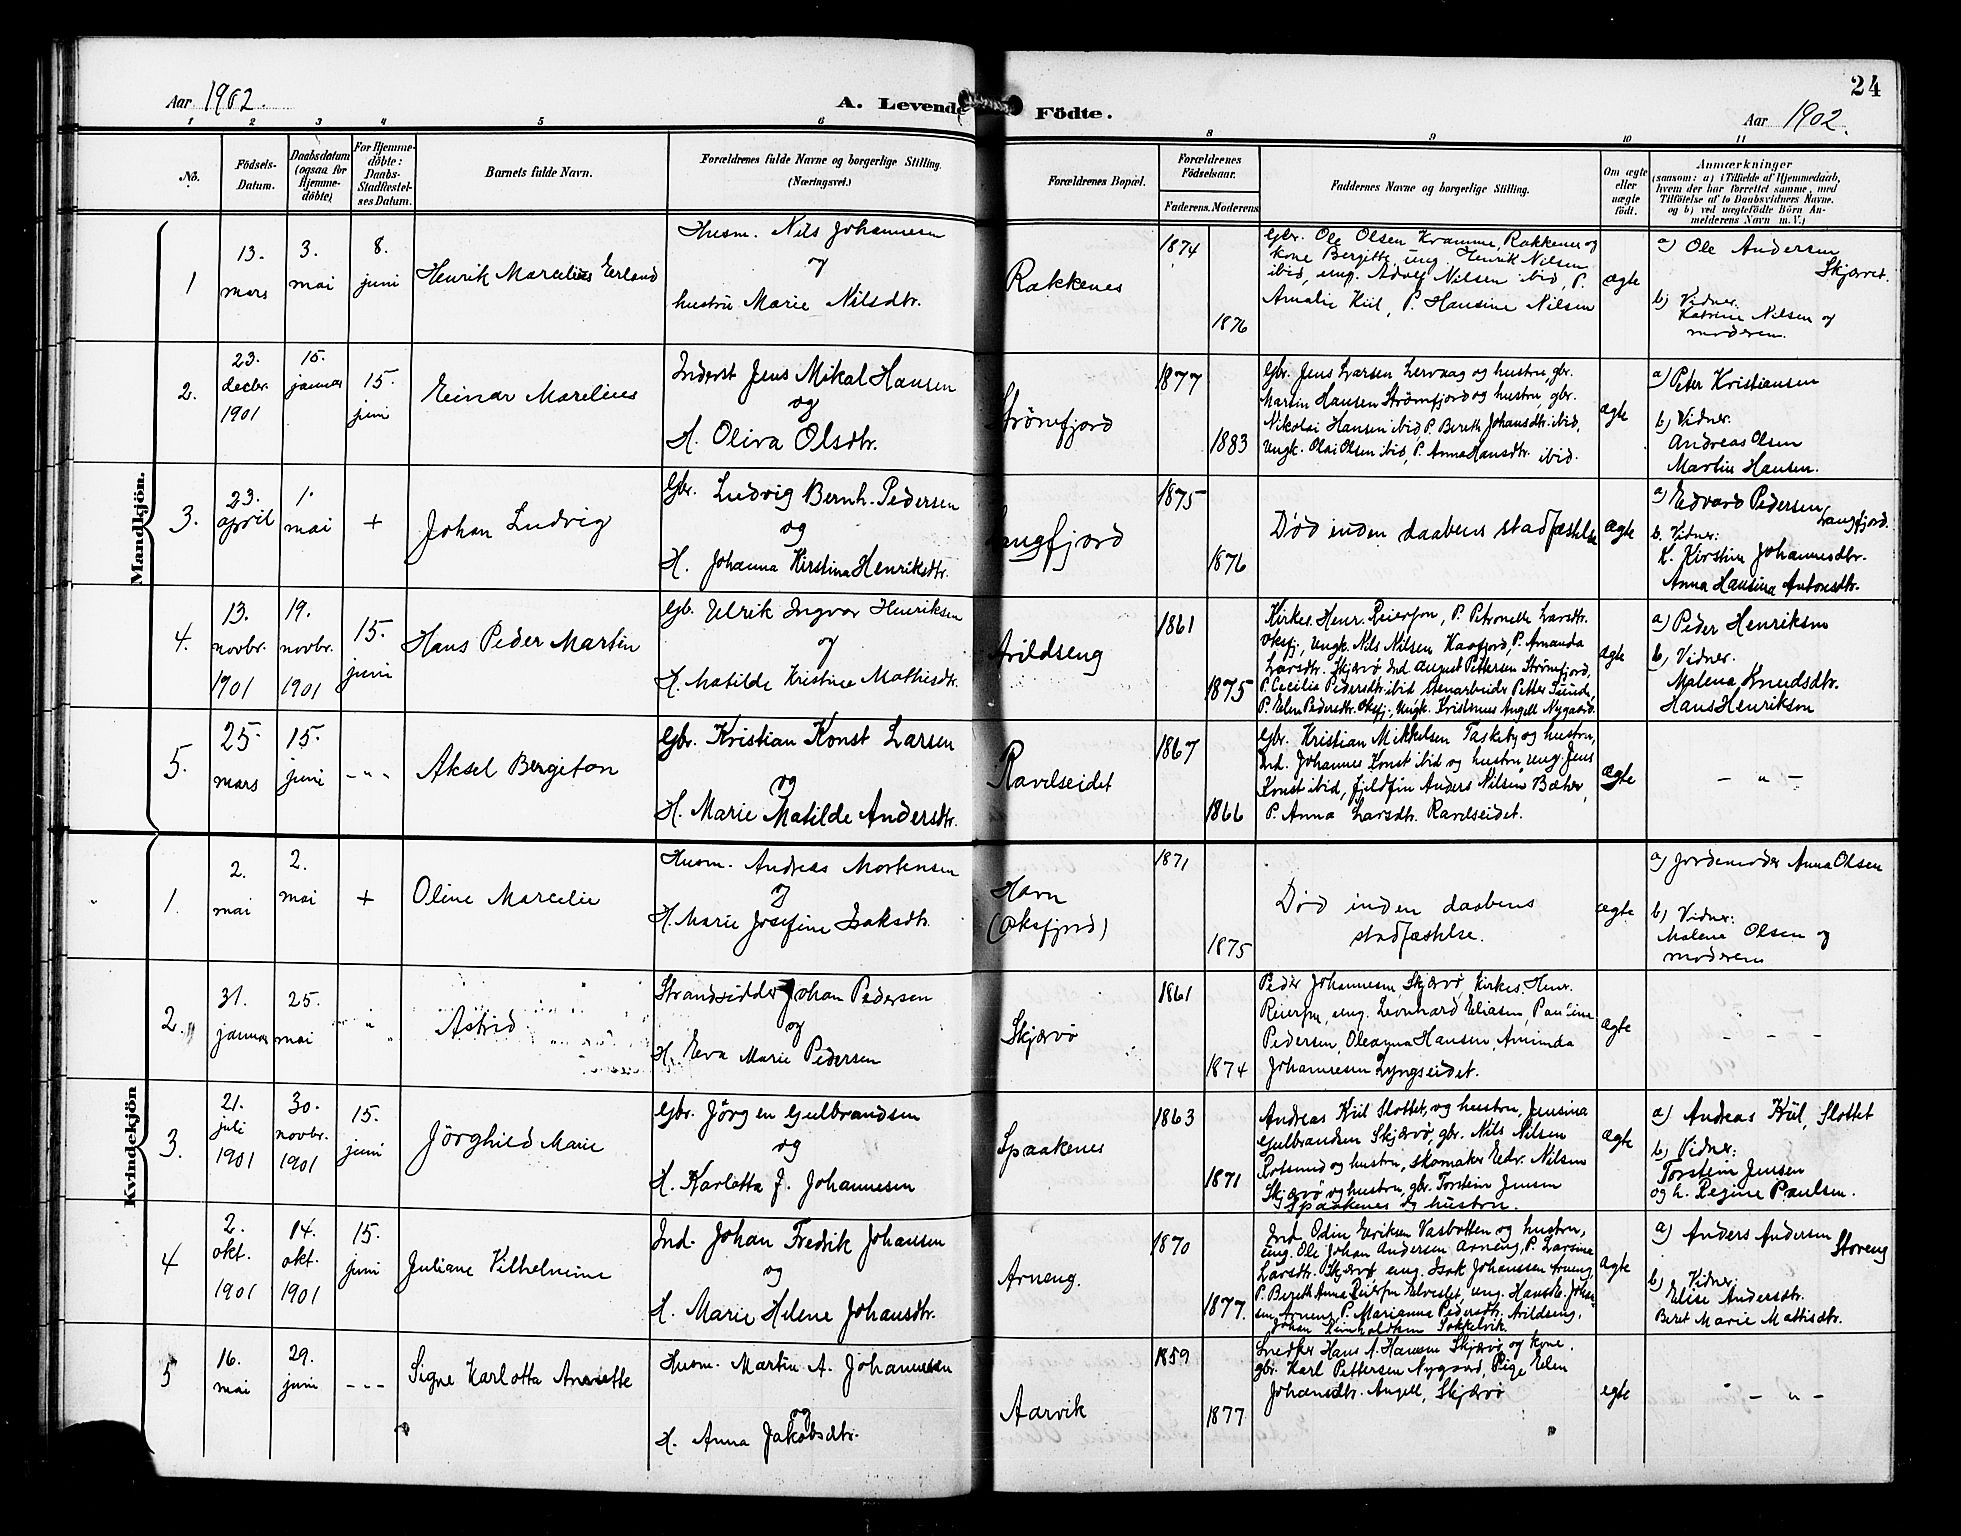 24
Aar 1902.
A. Levende Födte.
Aar 1902.
1 2 3 4 5 6 8 9 10 11
No.
Födsels-
Datum.
Daabsdatum
(ogsaa for
Hjemme-
döbte)
For Hjemme-
döbte:
Daabs-
Stadfæstel-
ses Datum.
Barnets fulde Navn.
Forældrenes fulde Navne og borgerlige Stilling.
(Næringsvei.)
Forældrenes Bopæl.
Forældrenes
Födselsaar.
Faderens. Moderens.
Faddernes Navne og borgerlige Stilling.
Om ægte
eller
uægte
födt.
Anmærkninger
(saasom: a) i Tilfælde af Hjemmedaab,
hvem der har forrettet samme, med
Tilföielse af to Daabsvidners Navne.
og b) ved uægtefödte Börn An-
melderens Navn m. V.)
Mandkjön.
1
13.
mars
3.
mai
8.
juni
Henrik Marcelius Erland
Husm. Nils Johannesen
og
hustru Marie Nilsdtr.
Rakkenes
1874
1876
Gbr. Ole Olsen Kramme, Rakkenes og
kone Bergitte, ung. Henrik Nilsen
ibid, ung. Adolf Nilsen ibid, P.
Amalie Kiil, P. Hansine Nilsen
ægte
a) Ole Andersen
Skjærvø.
b) Vidner.
Katrine Nilsen og
moderen.
2.
23.
decbr.
1901
15.
januar
15.
juni
Einar Marelius
Inderst Jens Mikal Hansen
og
H. Oliva Olsdtr.
Strømfjord
1877
1883
Gbr. Jens Larsen Lervaag og hustru, gbr.
Martin Hansen Strømfjord og hustru, gbr.
Nikolai Hansen ibid P. Bereth Johansdtr. ibid,
Ungk. Olai Olsen ibid, P. Anna Hansdtr. ibid.
ægte
a) Peter Kristiansen
b) Vidner.
Andreas Olsen
Martin Hansen.
3.
23.
april
1.
mai
+
Johan Ludvig
Gbr. Ludvig Bernh. Pedersen
og
H. Johanna Kirstina Henriksdtr.
Langfjord
1875
1876
Død inden daabens stadfæstelse
ægte
a) Edvard Pedersen
Langfjord.
b. Vidner:
K. Kirstin Johannesdtr.
Anna Hansina Antonsdtr.
4.
13.
novbr.
1901
19.
novbr.
1901
15.
juni
Hans Peder Martin
Gb. Ulrik Ingvor Henriksen
og
H. Matilde Kristine Mathisdtr.
Arildseng
1861
1875
Kirkes. Henr. Reiersen, P. Petronelle Larsdtr.
Oksfj, Ungk. Nils Nilsen Kaafjord, P. Amanda
Larsdtr. Skjærvø Ind. August Pettersen Strømfjord,
P. Cecilia Pedersdtr. ibid stenarbeider Petter Sund,
P. Elen Pedersdtr. Oksfj., Ungk. Kristmus Angell Nygaard.
ægte
a) Peder Henriksen
b) Vidner.
Malena Knudsdtr.
Hans Henriksen
5.
25.
mars
15.
juni
- " -
Aksel Bergeton
Gbr. Kristian Konst Larsen
og
H. Marie Matilde Andersdtr.
Ravelseidet
1867
1866
Gbr. Kristian Mikkelsen Taskeby og hustru,
Ind. Johannes Konst ibid og hustru, ung. Jens
Konst ibid, fjeldfin Anders Nilsen Bæhr,
P. Anna Larsdtr. Ravelseidet.
ægte
- " -
Kvindekjön
1.
2.
mai
2.
mai
+
Oline Marcelie
Husm. Andreas Mortensen
og
H. Marie Josefine Isaksdtr.
Havn
(Oksfjord)
1871
1875
Død inden daabens
stadfæstelse.
ægte
a) Jordemoder Anna Olsen
b) Vidner:
Malene Olsen og
moderen
2.
31.
januar
25.
mai
"
Astrid
Strandsidder Johan Pedersen
og
H. Eva Marie Pedersen
Skjærvø
1861
1874
Peder Johannesen, Skjærvø, Kirkes. Henr.
Reiersen, ung. Leonhard Eliasen, Pauline
Pedersen, Oleanna Hansen, Aminda
Johannesen Lyngseidet.
ægte
- - -
3.
21.
juli
1901
30.
novbr.
1901
15.
juni
Jörghild Marie
Gbr. Jörgen Gulbrandsen
og
H. Karlotta J. Johannesen
Spaakenes
1863
1871
Andreas Kiil Slottet, og hustru, Jensina
Gulbrandsen Skjærvø, gbr. Nils Nilsen
Rotsund og hustru, skomaker Edv. Nilsen
Skjærvø og hustru, gbr. Torstein Jensen
Spaakenes og hustru.
ægte
a) Andreas Kiil, Slottet
b) Vidner:
Torstein Jensen
og h. Regine Paulsen.
4
2.
okt.
1901
14.
okt.
1901
15.
juni
Juliane Vilhelmine
Ind. Johan Fredrik Johansen
og
H. Marie Helene Johansdtr.
Arneng.
1870
1877.
Ind. Odin Eriksen Vasbotten og hustru,
ung. Ole Johan Andersen Arneng, P. Larsine
Larsdtr. Skjærvø ung. Isak Johanssen Arneng,
P. Bereth Anna Reiersen Elveslet, ung. Hans E. Johan-
sen Arneng, P. Marianna Pedersdtr. Arildseng,
Johan Reinholdtsen Sokkelvik.
ægte
a) Anders Andersen
Storeng
b) Vidner:
Elise Andersdtr.
Beret Marie Mattisdtr.
5
16.
mai
29.
juni
- - -
Signe Karlotta Annette
Husm. Martin A. Johannesen
og
H. Anna Jakobsdtr.
Aarvik
1859
1877
Snedker Hans A. Hansen Skjærvø og kone.
gbr. Karl Pettersen Nygaard, Pige Elen
Johansdtr. Angell, Skjærvø
egte
- " -